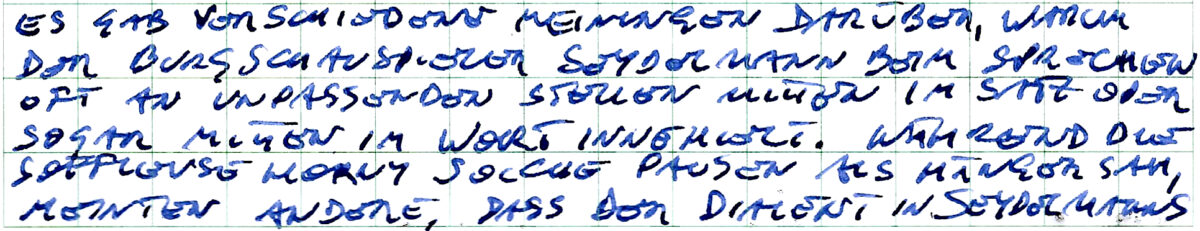 ES GAB VERSCHIEDENE MEINUNGEN DARÜBER, WARUM
DER BURGSCHAUSPIELER SEYDELMANN BEIM SPRECHEN
OFT AN UNPASSENDEN STELLEN MITTEN IM SATZ ODER
SOGAR MITTEN IM WORT INNEHIELT. WÄHREND DIE
SOFFLEUSE SOLCHE PAUSEN ALS MÄNGEL SAH,
MEINTEN ANDERE, DASS DER DIALEKT IN SEYDELMANNS